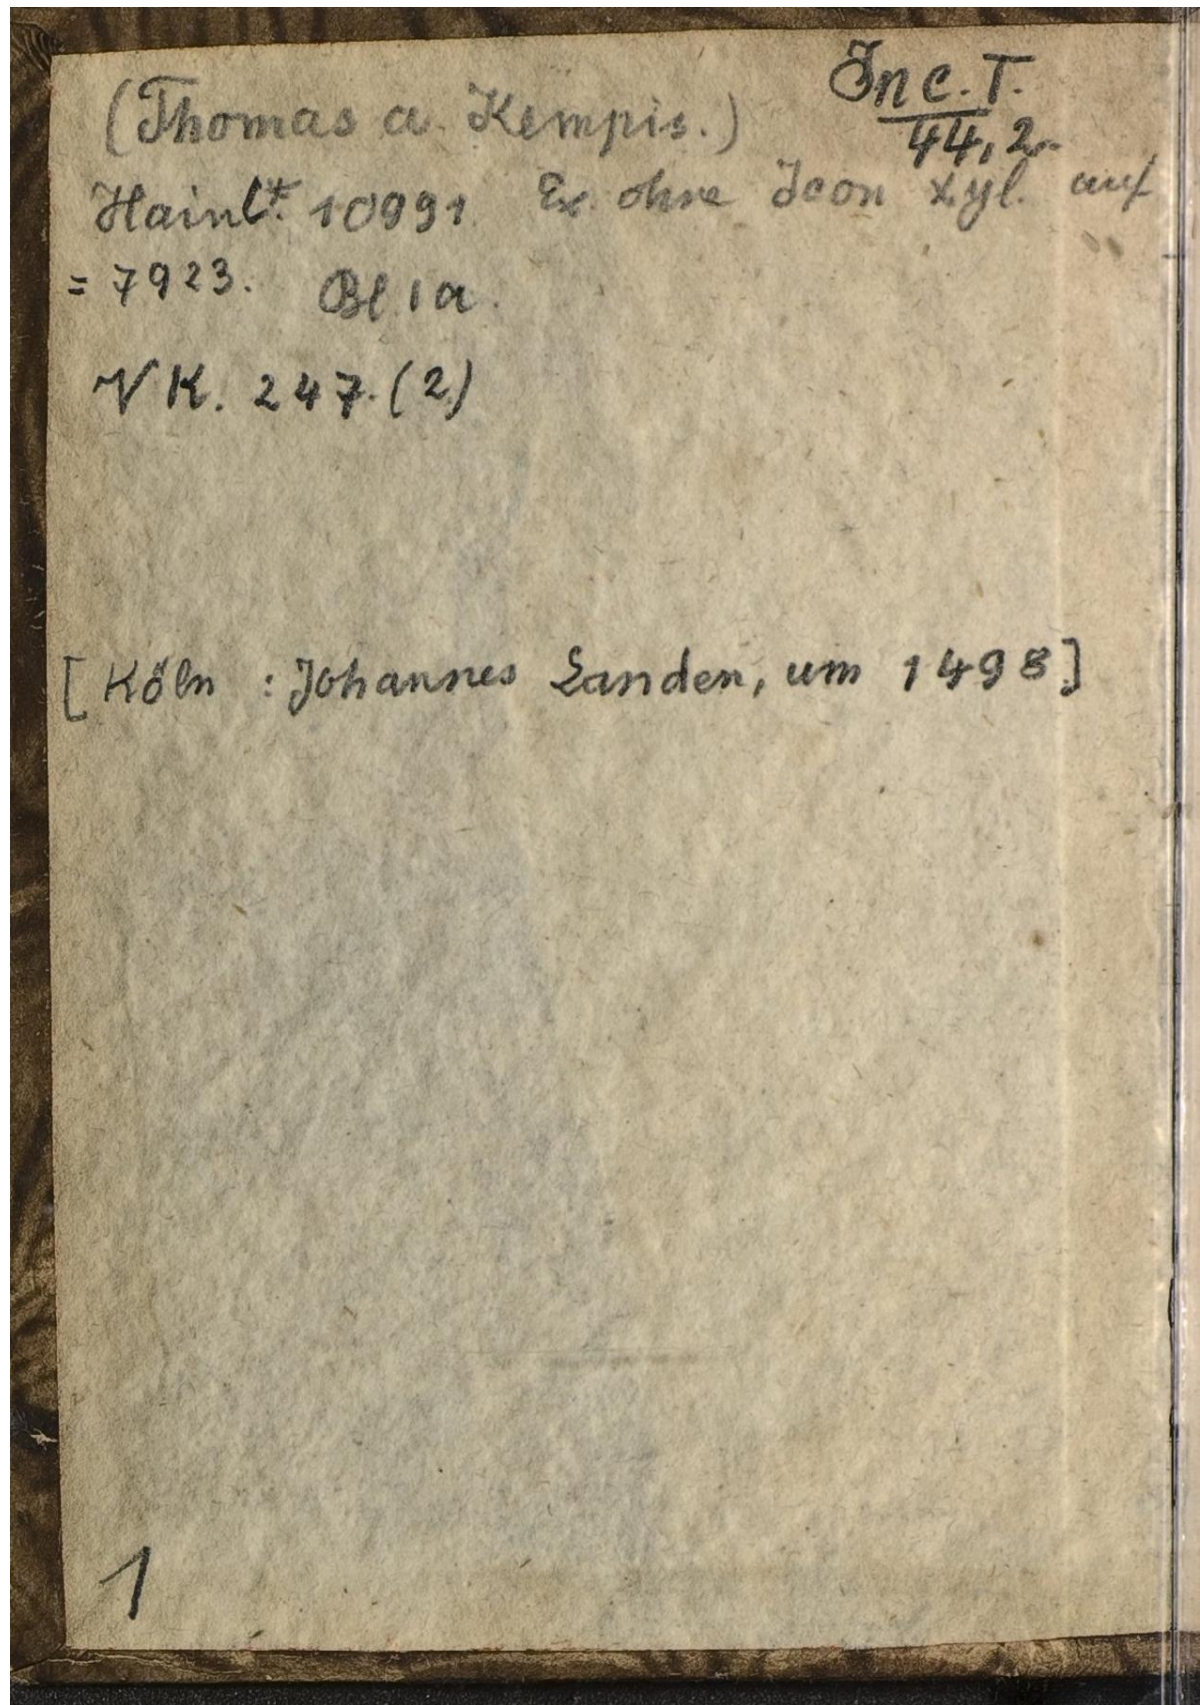 Inc. T.
44,2.
(Thomas a Kempis.)
Hain 10991. Ex. ohne Icon xyl. auf
= 7923. Bl. 1a.
VK. 247.(2)
[Köln : Johannes Landen, um 1498]
1